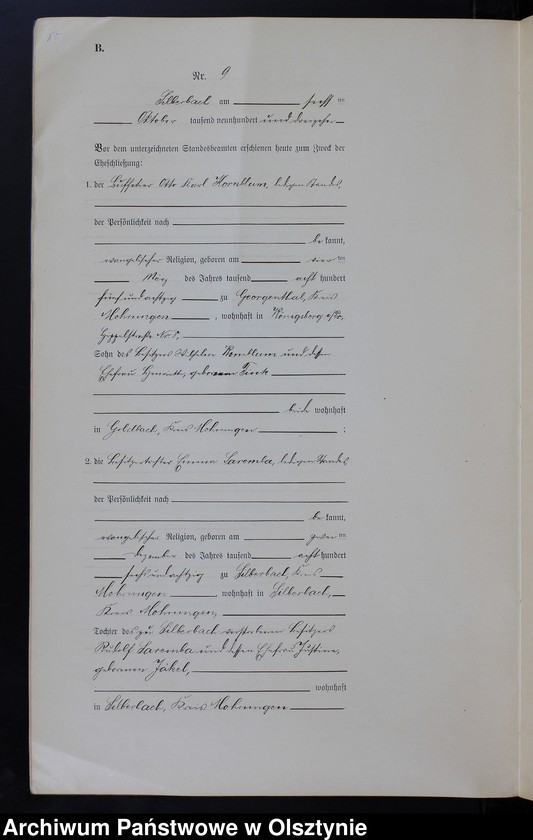 B.
Nr. 9
Silberbach am sechs ten
Oktober tausend neunhundert und dreizehn
Vor dem unterzeichneten Standesbeamten erschienen heute zum Zweck der
Eheschließung:
1. der Otto Karl Hornblum, ledigen Standes,
der Persönlichkeit nach
be kannt,
evangelischer Religion, geboren am vier ten
März des Jahres tausend acht hundert
fünf und achtzig zu Georgenthal, Kreis
Mohrungen, wohnhaft in Königsberg
Hippelstraße No
Sohn des Besitzers Wilhelm Hornblum und dessen
Ehefrau Henriette, geborenen Finck
beide wohnhaft
in Goldbach, Kreis Mohrungen ;
2. die Besitzertochter Emma Saremba, ledigen Standes
der Persönlichkeit nach
be kannt,
evangelischer Religion, geboren am zwei ten
Dezember des Jahres tausend acht hundert
sechs und achtzig zu Silberbach, Kreis
Mohrungen, wohnhaft in Silberbach,
Kreis Mohrungen,
Tochter des zu Silberbach verstorbenen Besitzers
Rudolf Saremba und dessen Ehefrau Justine,
geborenen Jäkel,
wohnhaft
in Silberbach, Kreis Mohrungen
Archiwum Państwowe w Olsztynie